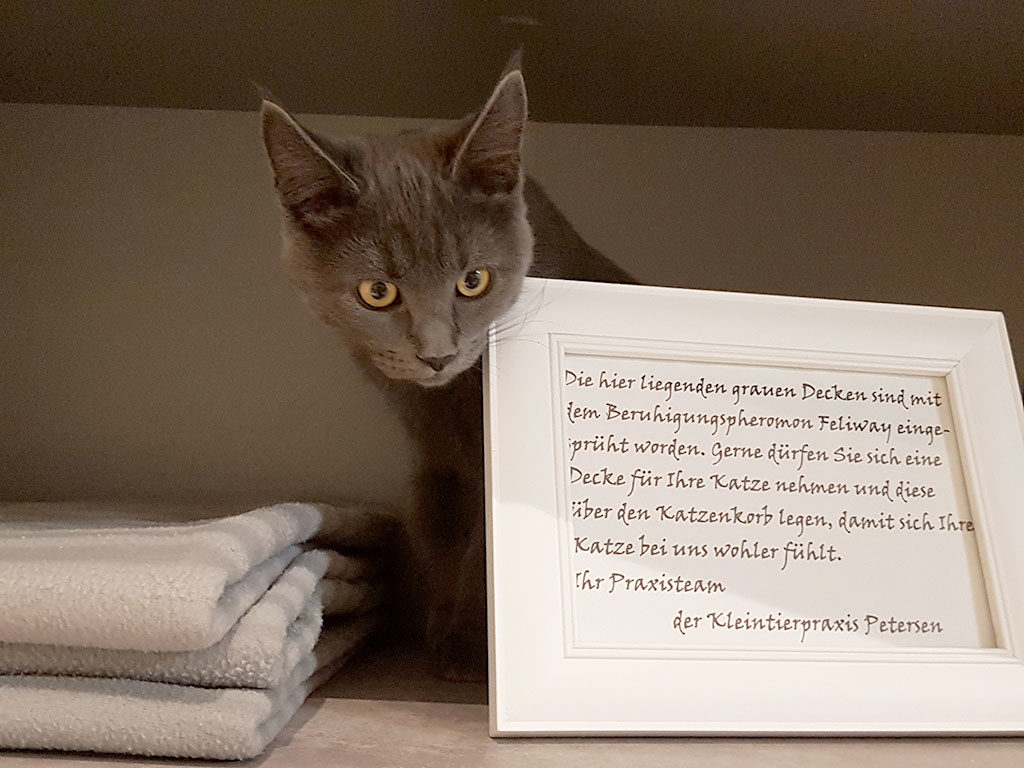 Die hier liegenden grauen Decken sind mit
dem Beruhigungspheromon Feliway einge-
sprüht worden. Gerne dürfen Sie sich eine
Decke für Ihre Katze nehmen und diese
über den Katzenkorb legen, damit sich Ihre
Katze bei uns wohler fühlt.
Ihr Praxisteam
der Kleintierpraxis Petersen